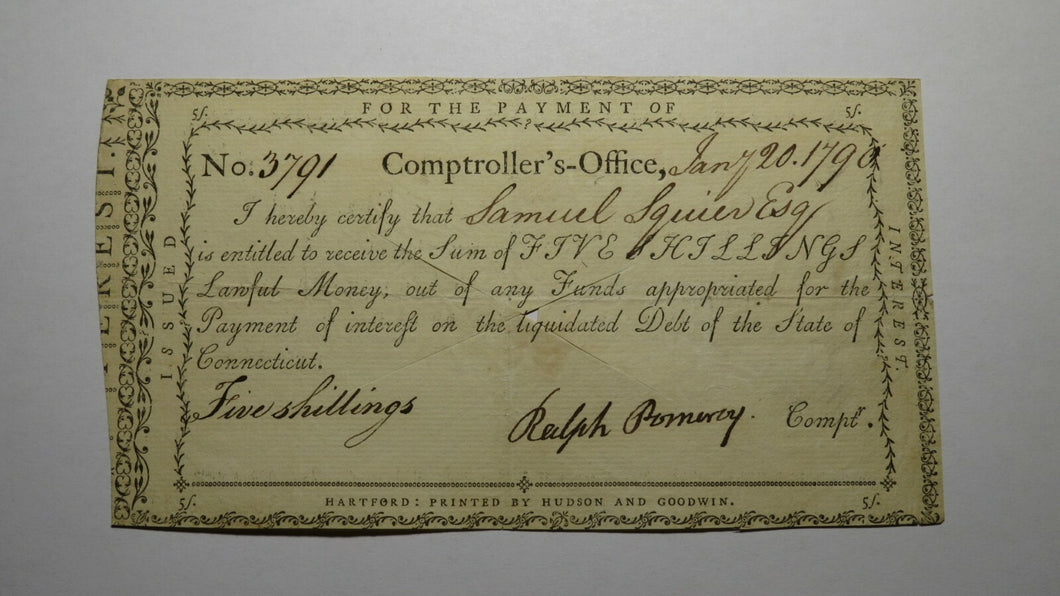 5/.
FOR THE PAYMENT OF
5/.
No. 3791 Comptroller's-Office, Jany 20. 1790
I hereby certify that Samuel Squier Esq
is entitled to receive the Sum of FIVE SHILLINGS
Lawful Money, out of any Funds appropriated for the
Payment of interest on the liquidated Debt of the State of
Connecticut.
Five shillings
Ralph Pomeroy. Comptr.
5/.
HARTFORD: PRINTED BY HUDSON AND GOODWIN.
5/.
ISSUED
INTEREST.